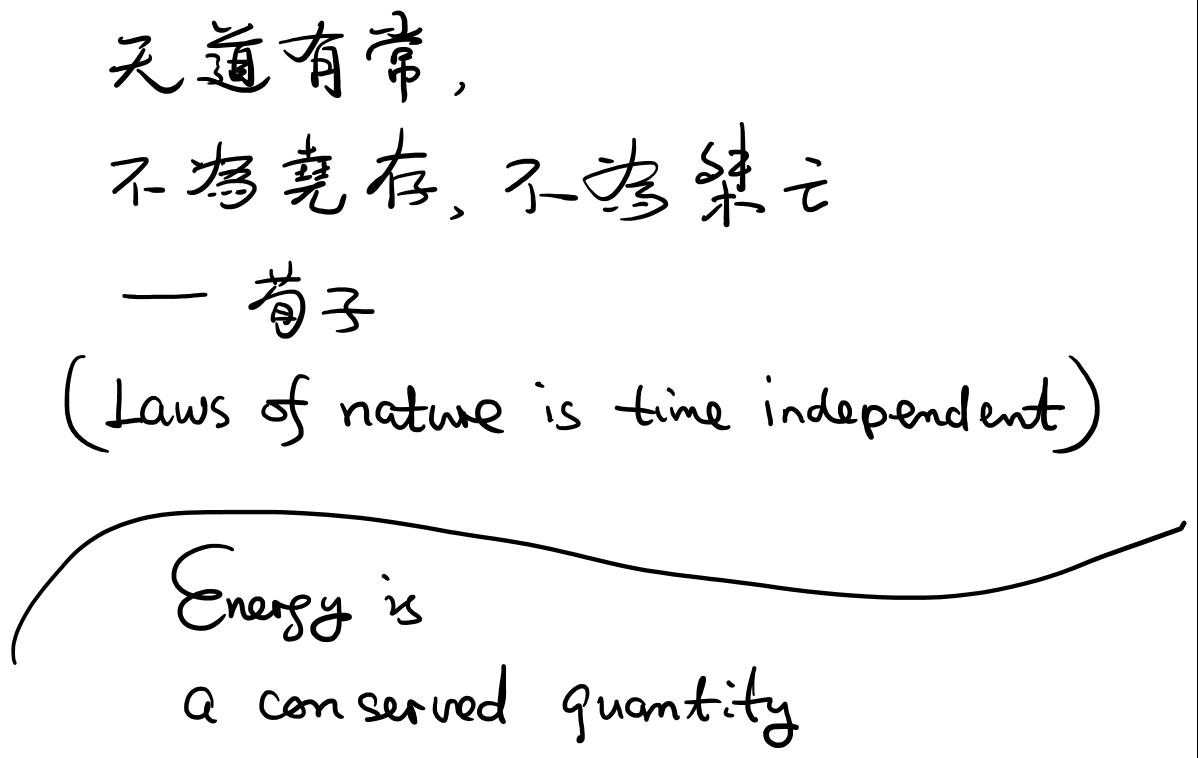 天道有常，
不為堯存、不為桀亡
— 荀子
(Laws of nature is time independent)
Energy is
a conserved quantity